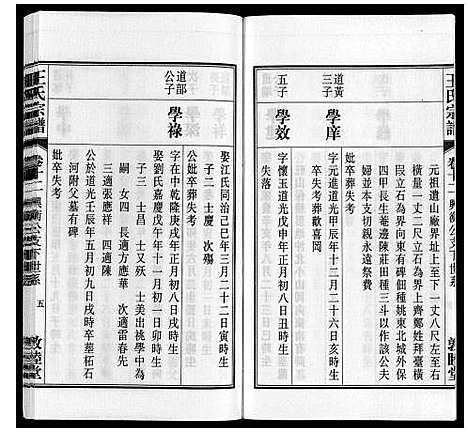 王氏宗譜
卷十二
興衞公支下世系
敦睦堂
元祖遺山廠界址上至下一丈八尺左至
橫量一丈二尺立石為界上齊鄭姓拜臺橫
叚立石為界向東有碑四個桃東北城外保
四甲長生菴邊陳莊田種三斗以作該公夫
婦並本支初親永遠祭費
道黃三子
學庠
字元進道光甲辰年十二月二十六日亥時生
妣卒失考葬歡喜岡
五子
學效
字懷玉道光戊申年正月初八日丑時生
失落
王氏宗譜
卷十二
興衞公支下世系
五
敦睦堂
道部公子
學祿
娶江氏同治己巳年三月二十二日寅時生
子二 士慶 次殤
字在中乾隆庚戌年正月初八日戌時生
公妣卒葬失考
娶劉氏嘉慶戊午年十一月初一日卯時生
子三 士昌 士又殀 士美出祧學中為
嗣 女四 長適方應華 次適雷春先
三適張應祥 四適陳
公於道光壬辰年五月初九日戌時卒塟柘石
河附父墓有碑
妣卒失考